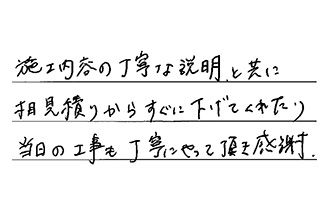 施工内容の丁寧な説明、と共に
相見積りからすぐに下げてくれたり
当日の工事も丁寧にやって頂き感謝.